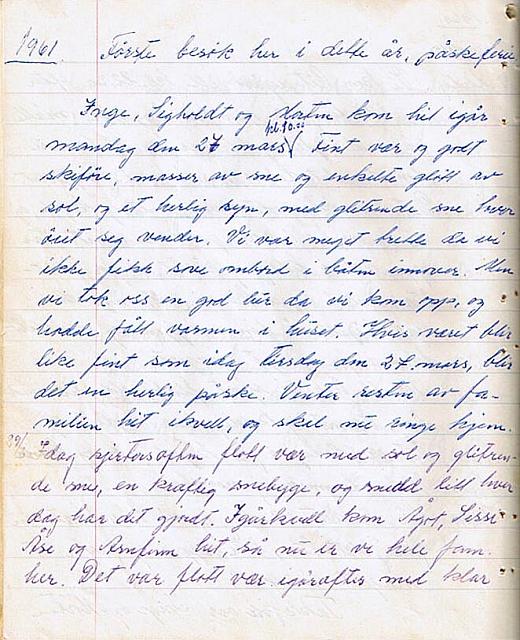 1961. Første besøk her i dette år, påskeferie
Inge, Sigholdt og Martin kom hit igår
kl. 10.00
mandag den 27 mars. Fint vær og godt
skiføre, masser av sne og enkelte glött av
sol, og et herlig syn, med glitrende sne hvor
öiet seg vender. Vi var meget trette da vi
ikke fikk sove ombord i båten innover. Men
vi tok oss en god lur da vi kom opp, og
hadde fått varmen i huset. Hvis været blir
like fint som idag tirsdag den 27. mars, blir
det en herlig påske. Venter resten av fa-
milien hit ikveld, og skal nu ringe hjem.
Idag skjærtorsaften flott vær med sol og glitren-
de sne, en kraftig snebygge, og snedd litt hver
dag har det gjort. Igårkveld kom Ågot, Sissi
Åse og Arnfinn hit, så nu er vi hele fam.
her. Det var flott vær igåraftes med klar